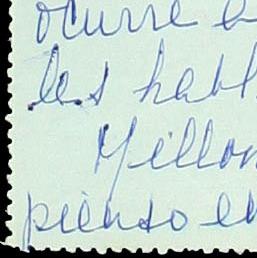 ocurre e
les habl
Millon
pienso en